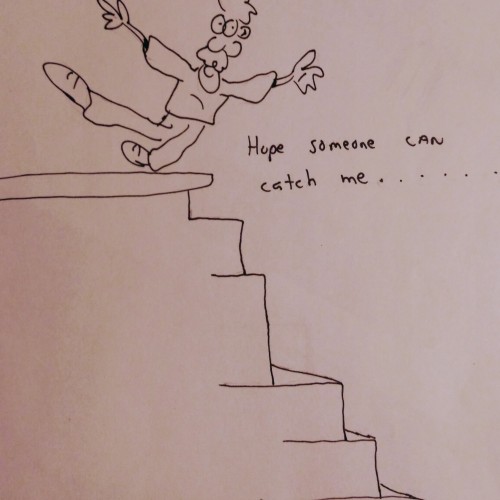 Hope someone CAN
catch me.......